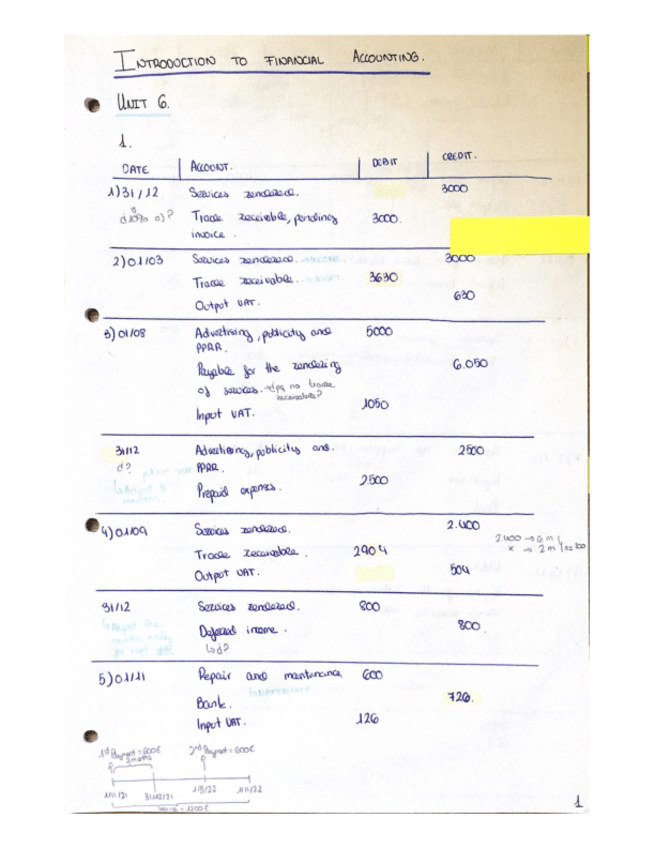 INTRODUCTION TO FINANCIAL ACCOUNTING.
UNIT 6.
1.
DATE ACCOUNT. DEBIT CREDIT.
1) 31/12 Services rendered. 3000
Trade receivable, pending 3000.
invoice.
2) 01/03 Services rendered. 3000
Trade receivable. 3630
Output VAT. 630
3) 01/08 Advertising, publicity and 5000
PPRR.
Payable for the rendering 6.050
of services.
receivables?
Input VAT. 1050
31/12 Advertising, publicity and. 2500
d? PPRR.
Prepaid expenses. 2500
4) 01/09 Services rendered. 2.400
2.400 → 6 m
x → 2 m
Trade receivable. 2904
Output VAT. 504
31/12 Services rendered. 800
Deferred income. 800.
↳ d?
5) 01/11 Repair and maintenance 600
Bank. 726.
Input VAT. 126
1st Payment = 600€ 2nd Payment = 600€
2 months
1/11/21 31/12/21 1/5/22 1/11/22
1